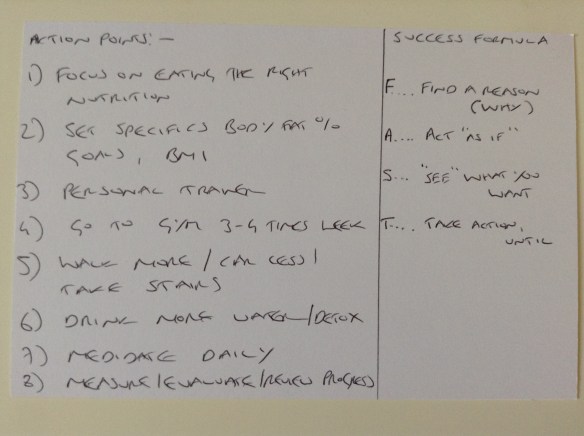 ACTION POINTS:-
1) FOCUS ON EATING THE RIGHT
NUTRITION
2) SET SPECIFICS BODY FAT %
GOALS, BMI
3) PERSONAL TRAINER
4) GO TO GYM 3-4 TIMES WEEK
5) WALK MORE / CAR LESS /
TAKE STAIRS
6) DRINK MORE WATER/DETOX
7) MEDIDATE DAILY
8) MEASURE/EVALUATE/REVIEW PROGRESS
SUCCESS FORMULA
F.... FIND A REASON
(WHY)
A.... ACT "AS IF"
S... "SEE" WHAT YOU
WANT
T.... TAKE ACTION,
UNTIL